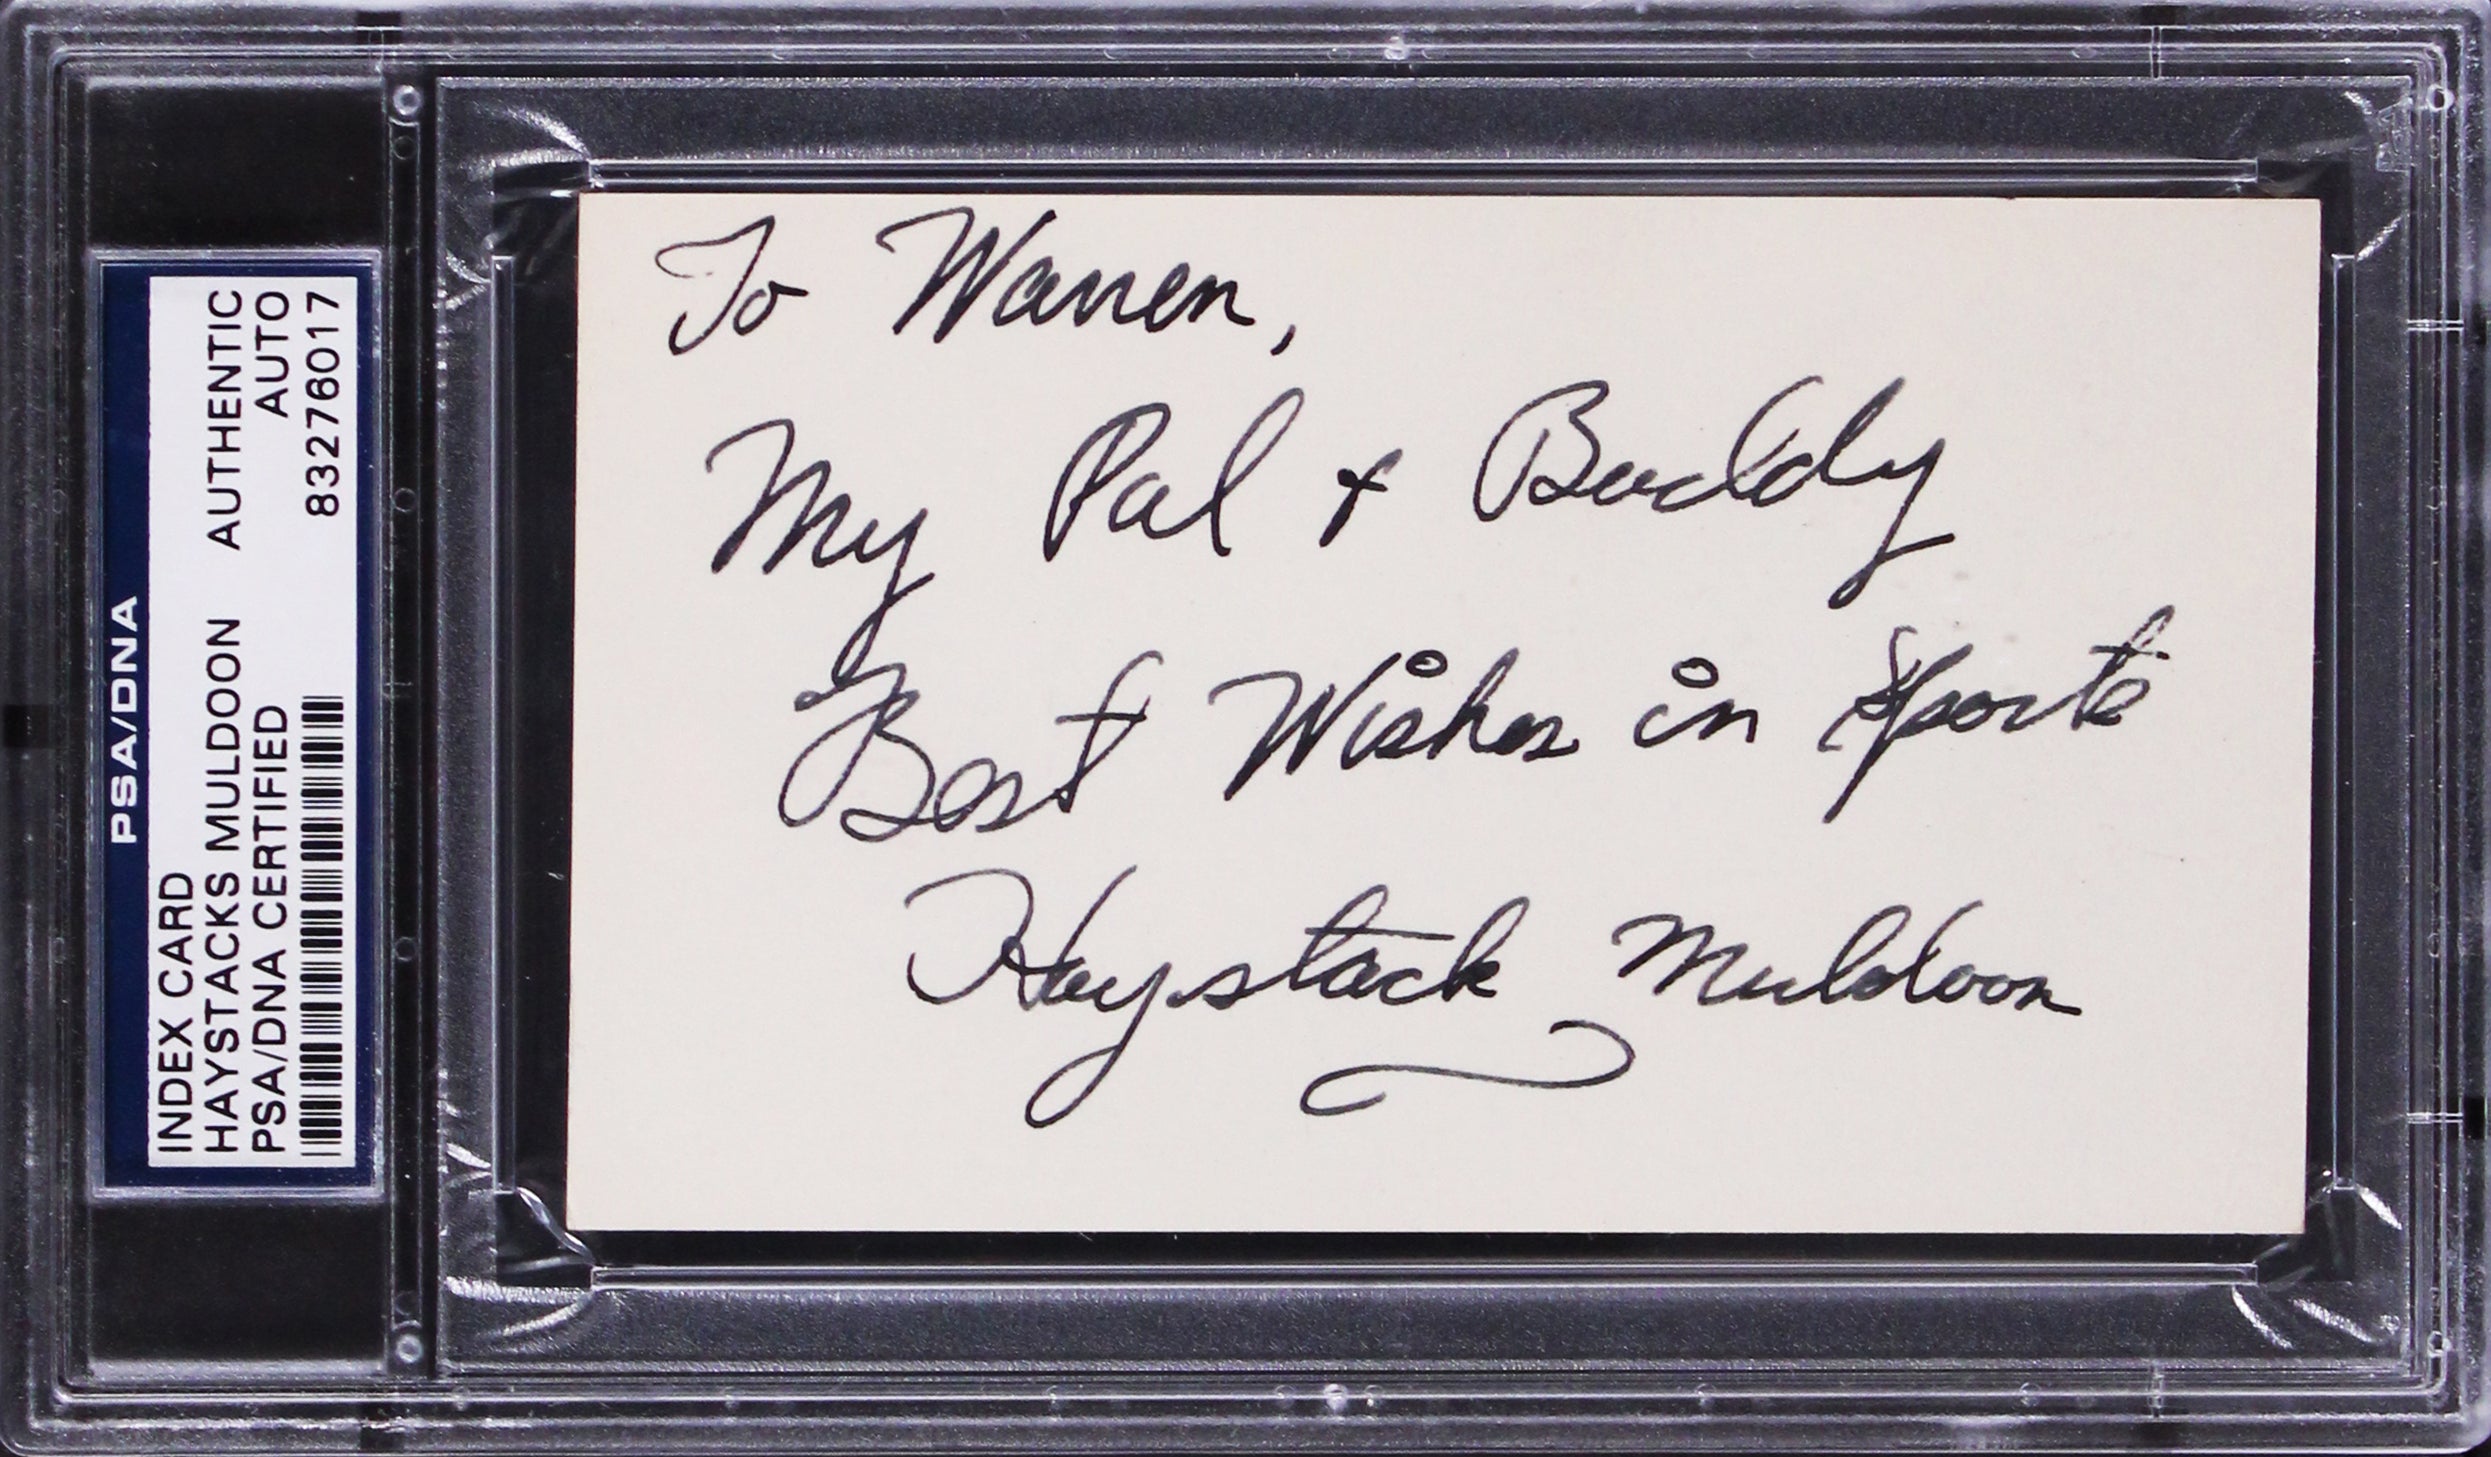 PSA/DNA
INDEX CARD
HAYSTACKS MULDOON AUTHENTIC
PSA/DNA CERTIFIED AUTO
83276017
To Warren,
My Pal + Buddy
Best Wishes in Sports
Haystack Muldoon